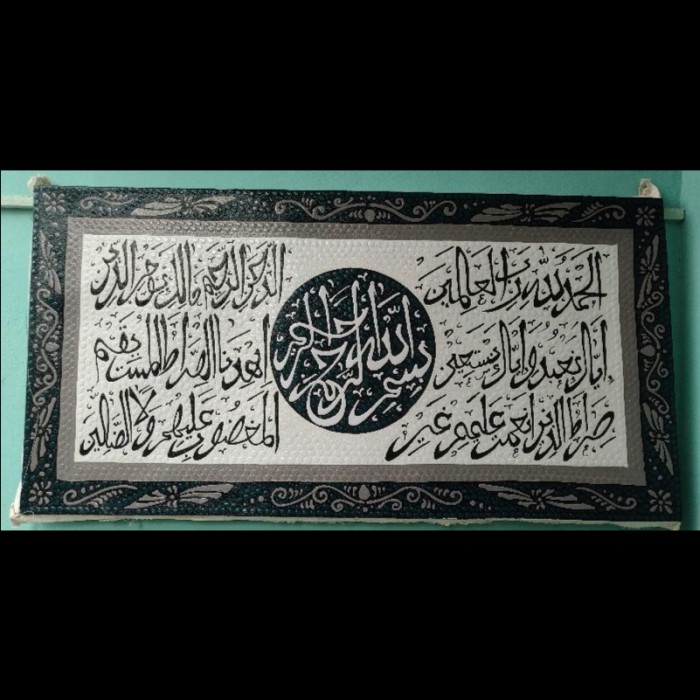 بسم الله الرحمن الرحيم
الحمد لله رب العالمين الرحمن الرحيم مالك يوم الدين
إياك نعبد وإياك نستعين اهدنا الصراط المستقيم
صراط الذين أنعمت عليهم غير المغضوب عليهم ولا الضالين